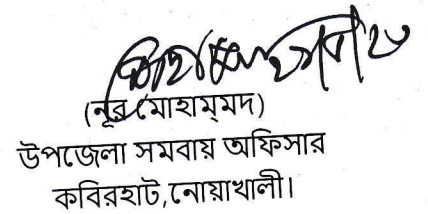 (নূর মোহাম্মদ)
উপজেলা সমবায় অফিসার
কবিরহাট,নোয়াখালী।